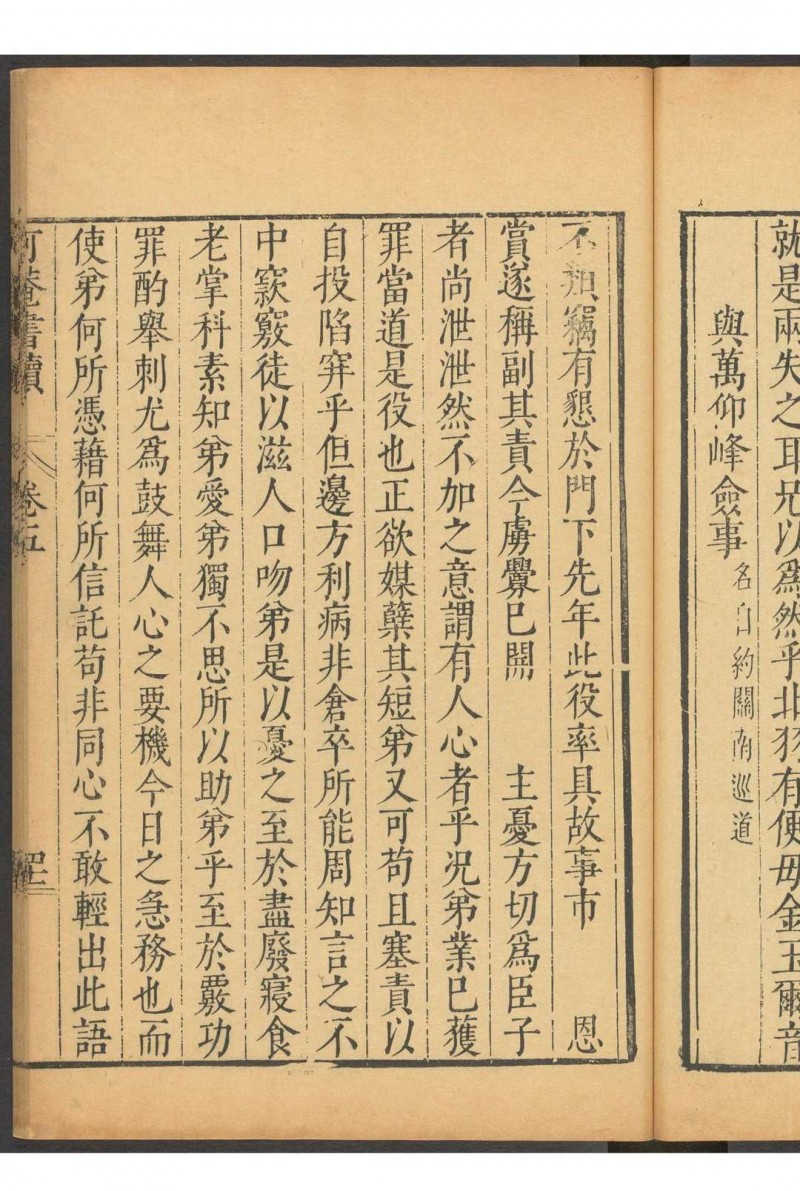 就是兩失之耳兄以為然乎非犰有便毋金玉爾音
與萬仰峰僉事名自約關南巡道
不類竊有懇於門下先年此役率具故事市　恩
賞遂稱副其責今虜釁已開　主憂方切爲臣子
者尚泄泄然不加之意謂有人心者乎况弟業已獲
罪當道是役也正欲媒孽其短弟又可苟且塞責以
自投陷穽乎但邊方利病非倉卒所能周知言之不
中窾竅徒以滋人口吻弟是以憂之至於盡廢寢食
老掌科素知弟愛弟獨不思所以助弟乎至於覈功
罪酌舉刺尤爲鼓舞人心之要機今日之急務也而
使弟何所憑藉何所信託苟非同心不敢輕出此語
可菴書牘　卷五